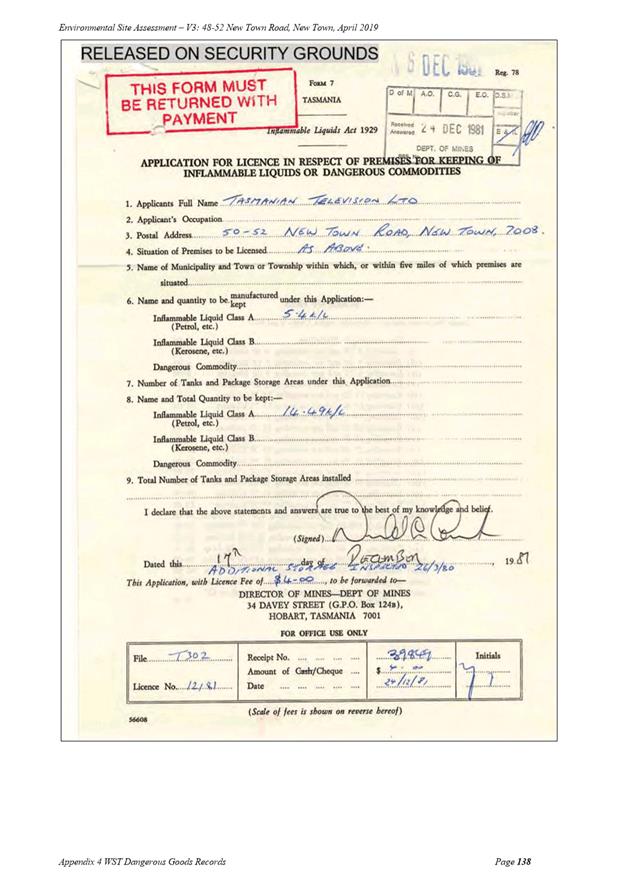 Environmental Site Assessment – V3: 48-52 New Town Road, New Town, April 2019
RELEASED ON SECURITY GROUNDS
6 DEC 1981
Reg. 78
THIS FORM MUST
BE RETURNED WITH
PAYMENT
FORM 7
TASMANIA
D of M A.O. C.G. E.O. D.S.
Received
Answered 24 DEC 1981
E & L
DEPT. OF MINES
Inflammable Liquids Act 1929
APPLICATION FOR LICENCE IN RESPECT OF PREMISES FOR KEEPING OF
INFLAMMABLE LIQUIDS OR DANGEROUS COMMODITIES
1. Applicants Full Name TASMANIAN TELEVISION LTD
2. Applicant's Occupation
3. Postal Address 50-52 NEW TOWN ROAD, NEW TOWN, 7008.
4. Situation of Premises to be Licensed AS ABOVE.
5. Name of Municipality and Town or Township within which, or within five miles of which premises are
situated
6. Name and quantity to be manufactured kept under this Application:—
Inflammable Liquid Class A 5.4 k/L
(Petrol, etc.)
Inflammable Liquid Class B
(Kerosene, etc.)
Dangerous Commodity
7. Number of Tanks and Package Storage Areas under this Application
8. Name and Total Quantity to be kept:—
Inflammable Liquid Class A 14.49k/L
(Petrol, etc.)
Inflammable Liquid Class B
(Kerosene, etc.)
Dangerous Commodity
9. Total Number of Tanks and Package Storage Areas installed
I declare that the above statements and answers are true to the best of my knowledge and belief.
(Signed)
Dated this 17th day of DECEMBER, 1981
ADDITIONAL STORAGE INSPECTED 26/3/80
This Application, with Licence Fee of $4-00, to be forwarded to—
DIRECTOR OF MINES—DEPT OF MINES
34 DAVEY STREET (G.P.O. Box 124B),
HOBART, TASMANIA 7001
FOR OFFICE USE ONLY
File T302
Receipt No. 39849
Initials
Amount of Cash/Cheque $ 4.00
Licence No. 12/81
Date 24/12/81
56608
(Scale of fees is shown on reverse hereof)
Appendix 4 WST Dangerous Goods Records
Page 138